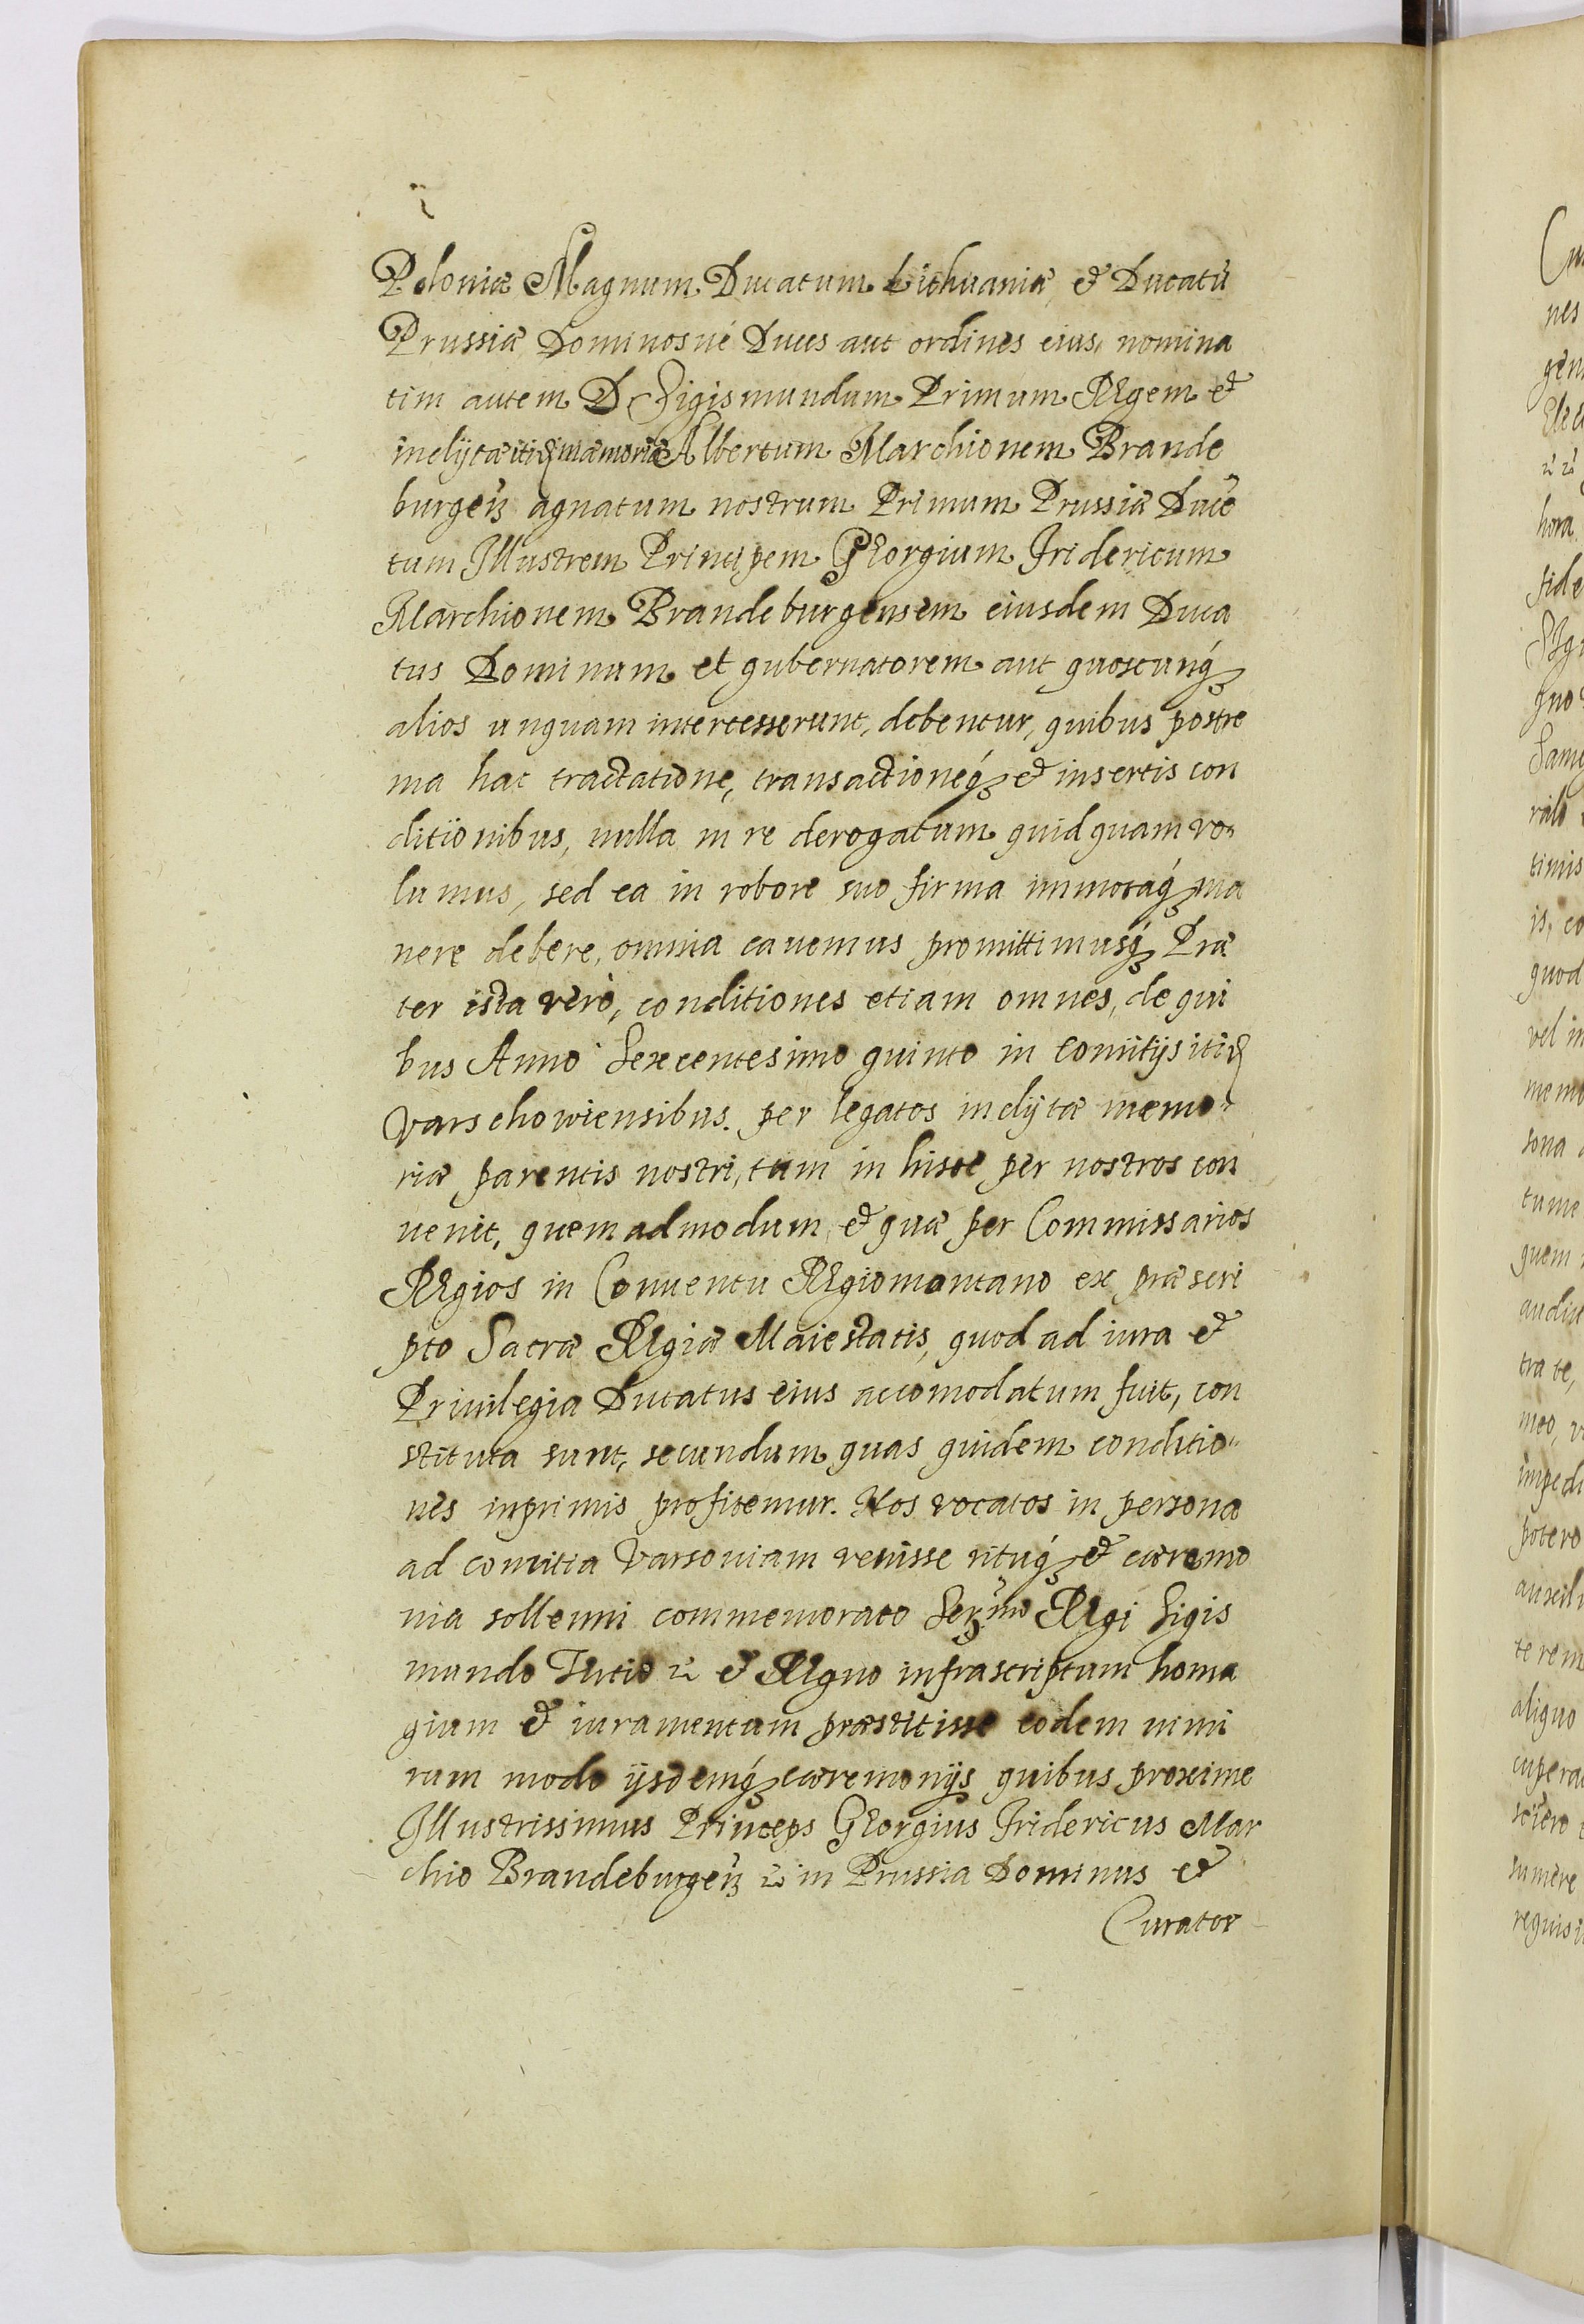 Poloniæ Magnum Ducatum Lithuaniæ, et Ducatū
Prussiæ Dominosvé Duces aut ordines eius, nomina
tim autem D Sigismundum Primum Regem et
inclytæ itid memoriæ Albertum Marchionem Brande
burgenß agnatum nostrum Primum Prussiæ Ducē
tum Illustrem Principem Georgium Fridericum
Marchionem Brandeburgensem eiusdem Duca
tus Dominum et gubernatorem aut quoscunq́ꝫ
alios unquam intercesserunt, debentur, quibus postre
ma hac tractatione, transactioneq́ꝫ et insertis con
ditionibus, nulla in re derogatum quidquam vo-
lumus, sed ea in robore suo firma immotaq́ꝫ ma
nere debere, omnia cavemus promittimusq́ꝫ Præ
ter ista verò, conditiones etiam omnes, de qui
bus Anno Sexcentesimo quinto in Comitijs itid
Varschowiensibus. per legatos inclytæ memo-
riæ parentis nostri, tum in hisce per nostros con
uenit, quemadmodum et quæ per Commissarios
Regios in Conventu Regiomontano ex præscri
pto Sacræ Regiæ Maiestatis, quod ad iura et
Privilegia Ducatus eius accomodatum fuit, con
stituta sunt, secundum quas quidem conditio-
nes inprimis profitemur. Nos vocatos in persona
ad comitia Varsoviam venisse rituq́ꝫ et cæremo
nia sollemni commemorato Serᵐᵒ Regi Sigis
mundo Tertio ꝛc et Regno infrascriptum homa
gium et iuramentum præstitisse eodem nimi
rum modo ijsdemq́ꝫ cæremonijs quibus proxime
Illustrissimus Princeps Georgius Fridericus Mar
chio Brandeburgenß ꝛc in Prussia Dominus et
Curator